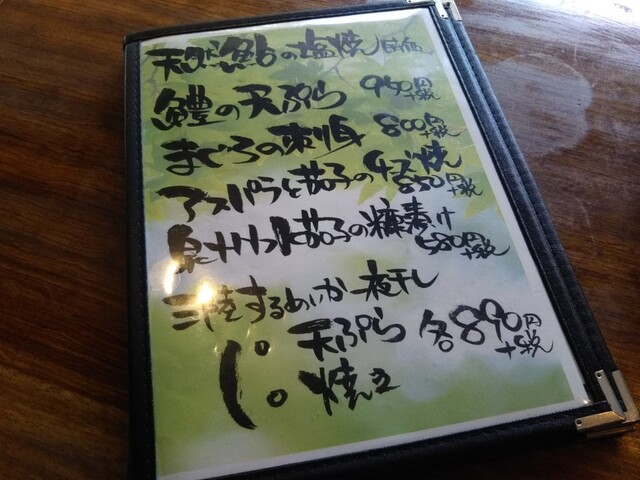 天然鮎の塩焼 時価
鱧の天ぷら 950円+税
まぐろの刺身 800円+税
アスパラと茄子のチーズ焼
850円+税
泉州水茄子の糠漬け
580円+税
三陸するめいか一夜干し
天ぷら 各890円+税
焼き